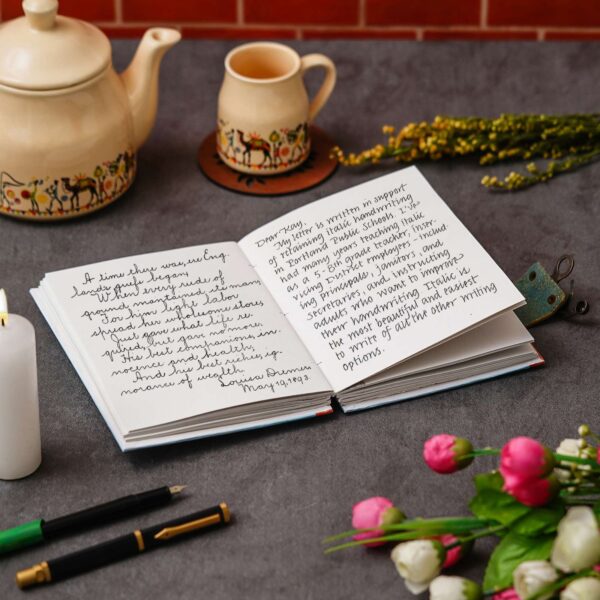 A time there was, ere Eng-
land's griefs began,
When every rood of
ground maintained its man;
For him light labor
spread her wholesome store,
Just gave what life re-
quired, but gave no more.
His best companions, in-
nocence and health;
And his best riches, ig-
norance of wealth.
Louisa
May 19, 1893.
Dear Kay,
My letter is written in support
of retaining italic handwriting
in Portland Public Schools. I've
had many years teaching italic
as a 5-8th grade teacher, inser-
vicing District employers - includ-
ing principals, janitors, and
secretaries, and instructing
adults who want to improve
their handwriting. Italic is
the most beautiful and easiest
to write of all the other writing
options.